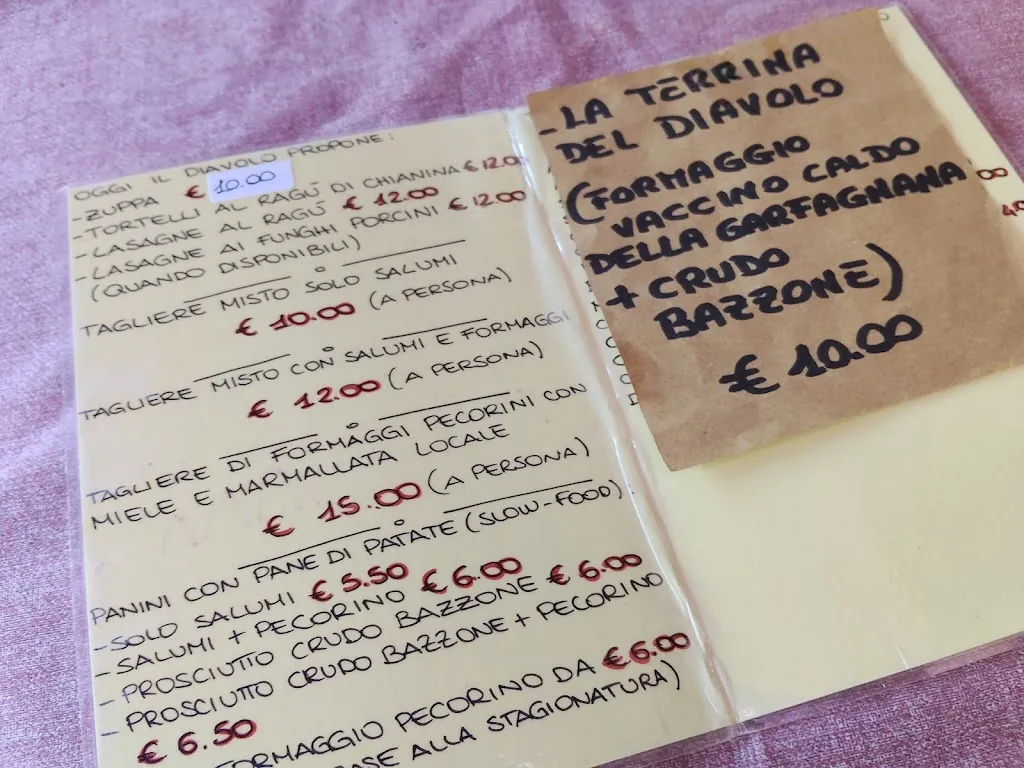 OGGI IL DIAVOLO PROPONE:
-ZUPPA € 10.00
-TORTELLI AL RAGÚ DI CHIANINA € 12.00
-LASAGNE AL RAGÚ € 12.00
-LASAGNE AI FUNGHI PORCINI € 12.00
(QUANDO DISPONIBILI)
TAGLIERE MISTO SOLO SALUMI
€ 10.00 (A PERSONA)
TAGLIERE MISTO CON SALUMI E FORMAGGI
€ 12.00 (A PERSONA)
TAGLIERE DI FORMAGGI PECORINI CON
MIELE E MARMALLATA LOCALE
€ 15.00 (A PERSONA)
PANINI CON PANE DI PATATE (SLOW-FOOD)
-SOLO SALUMI € 5.50
-SALUMI + PECORINO € 6.00
-PROSCIUTTO CRUDO BAZZONE € 6.00
-PROSCIUTTO CRUDO BAZZONE + PECORINO
€ 6.50
FORMAGGIO PECORINO DA € 6.00
ALLA STAGIONATURA)
-LA TERRINA
DEL DIAVOLO
(FORMAGGIO
VACCINO CALDO
DELLA GARFAGNANA
+ CRUDO
BAZZONE)
€ 10.00